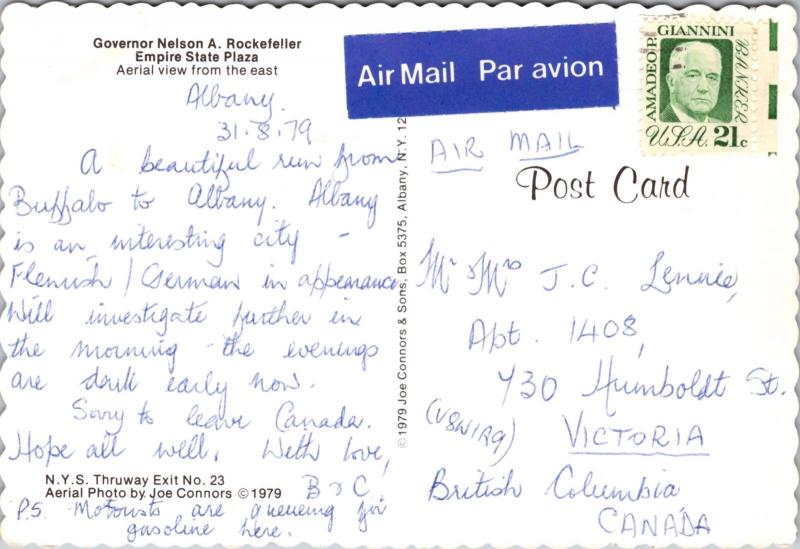 Governor Nelson A. Rockefeller
Empire State Plaza
Aerial view from the east
Albany.
31.8.79
A beautiful run from
Buffalo to Albany. Albany
is an interesting city -
Flemish / German in appearance
Will investigate further in
the morning - the evenings
are dark early now.
Sorry to leave Canada.
Hope all well. With love,
B & C.
N.Y.S. Thruway Exit No. 23
Aerial Photo by Joe Connors © 1979
P.S. Motorists are queueing for
gasoline here.
© 1979 Joe Connors & Sons, Box 5375, Albany, N.Y. 12
Air Mail Par avion
AMADEO P. GIANNINI
BANKER
U.S.A. 21c
AIR MAIL
Post Card
Mr & Mrs J.C. Lennie,
Apt. 1408,
730 Humboldt St.
(V8W1R9) VICTORIA
British Columbia
CANADA